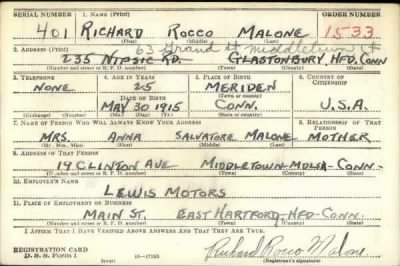 SERIAL NUMBER 1. NAME (Print) ORDER NUMBER
401 RICHARD ROCCO MALONE 1533
(First) (Middle) (Last)
2. ADDRESS (Print) 63 Grand St Middletown Ct
235 NIPSIC RD. GLASTONBURY, HFD. CONN
(Number and street or R. F. D. number) (Town) (County) (State)
3. TELEPHONE 4. AGE IN YEARS 5. PLACE OF BIRTH 6. COUNTRY OF CITIZENSHIP
NONE 25 MERIDEN
DATE OF BIRTH (Town or county)
MAY 30 1915 CONN. U.S.A.
(Mo.) (Day) (Yr.) (State or country)
7. NAME OF PERSON WHO WILL ALWAYS KNOW YOUR ADDRESS 8. RELATIONSHIP OF THAT PERSON
MRS. ANNA SALVATORE MALONE MOTHER
(Mr., Mrs., Miss) (First) (Middle) (Last)
9. ADDRESS OF THAT PERSON
19 CLINTON AVE MIDDLETOWN-MDLSX-CONN.
(Number and street or R. F. D. number) (Town) (County) (State)
10. EMPLOYER'S NAME
LEWIS MOTORS
11. PLACE OF EMPLOYMENT OR BUSINESS
MAIN ST. EAST HARTFORD-HFD-CONN.
(Number and street or R. F. D. number) (Town) (County) (State)
I AFFIRM THAT I HAVE VERIFIED ABOVE ANSWERS AND THAT THEY ARE TRUE.
REGISTRATION CARD
D. S. S. Form 1 (over) 16-17105 Richard Rocco Malone
(Registrant's signature)